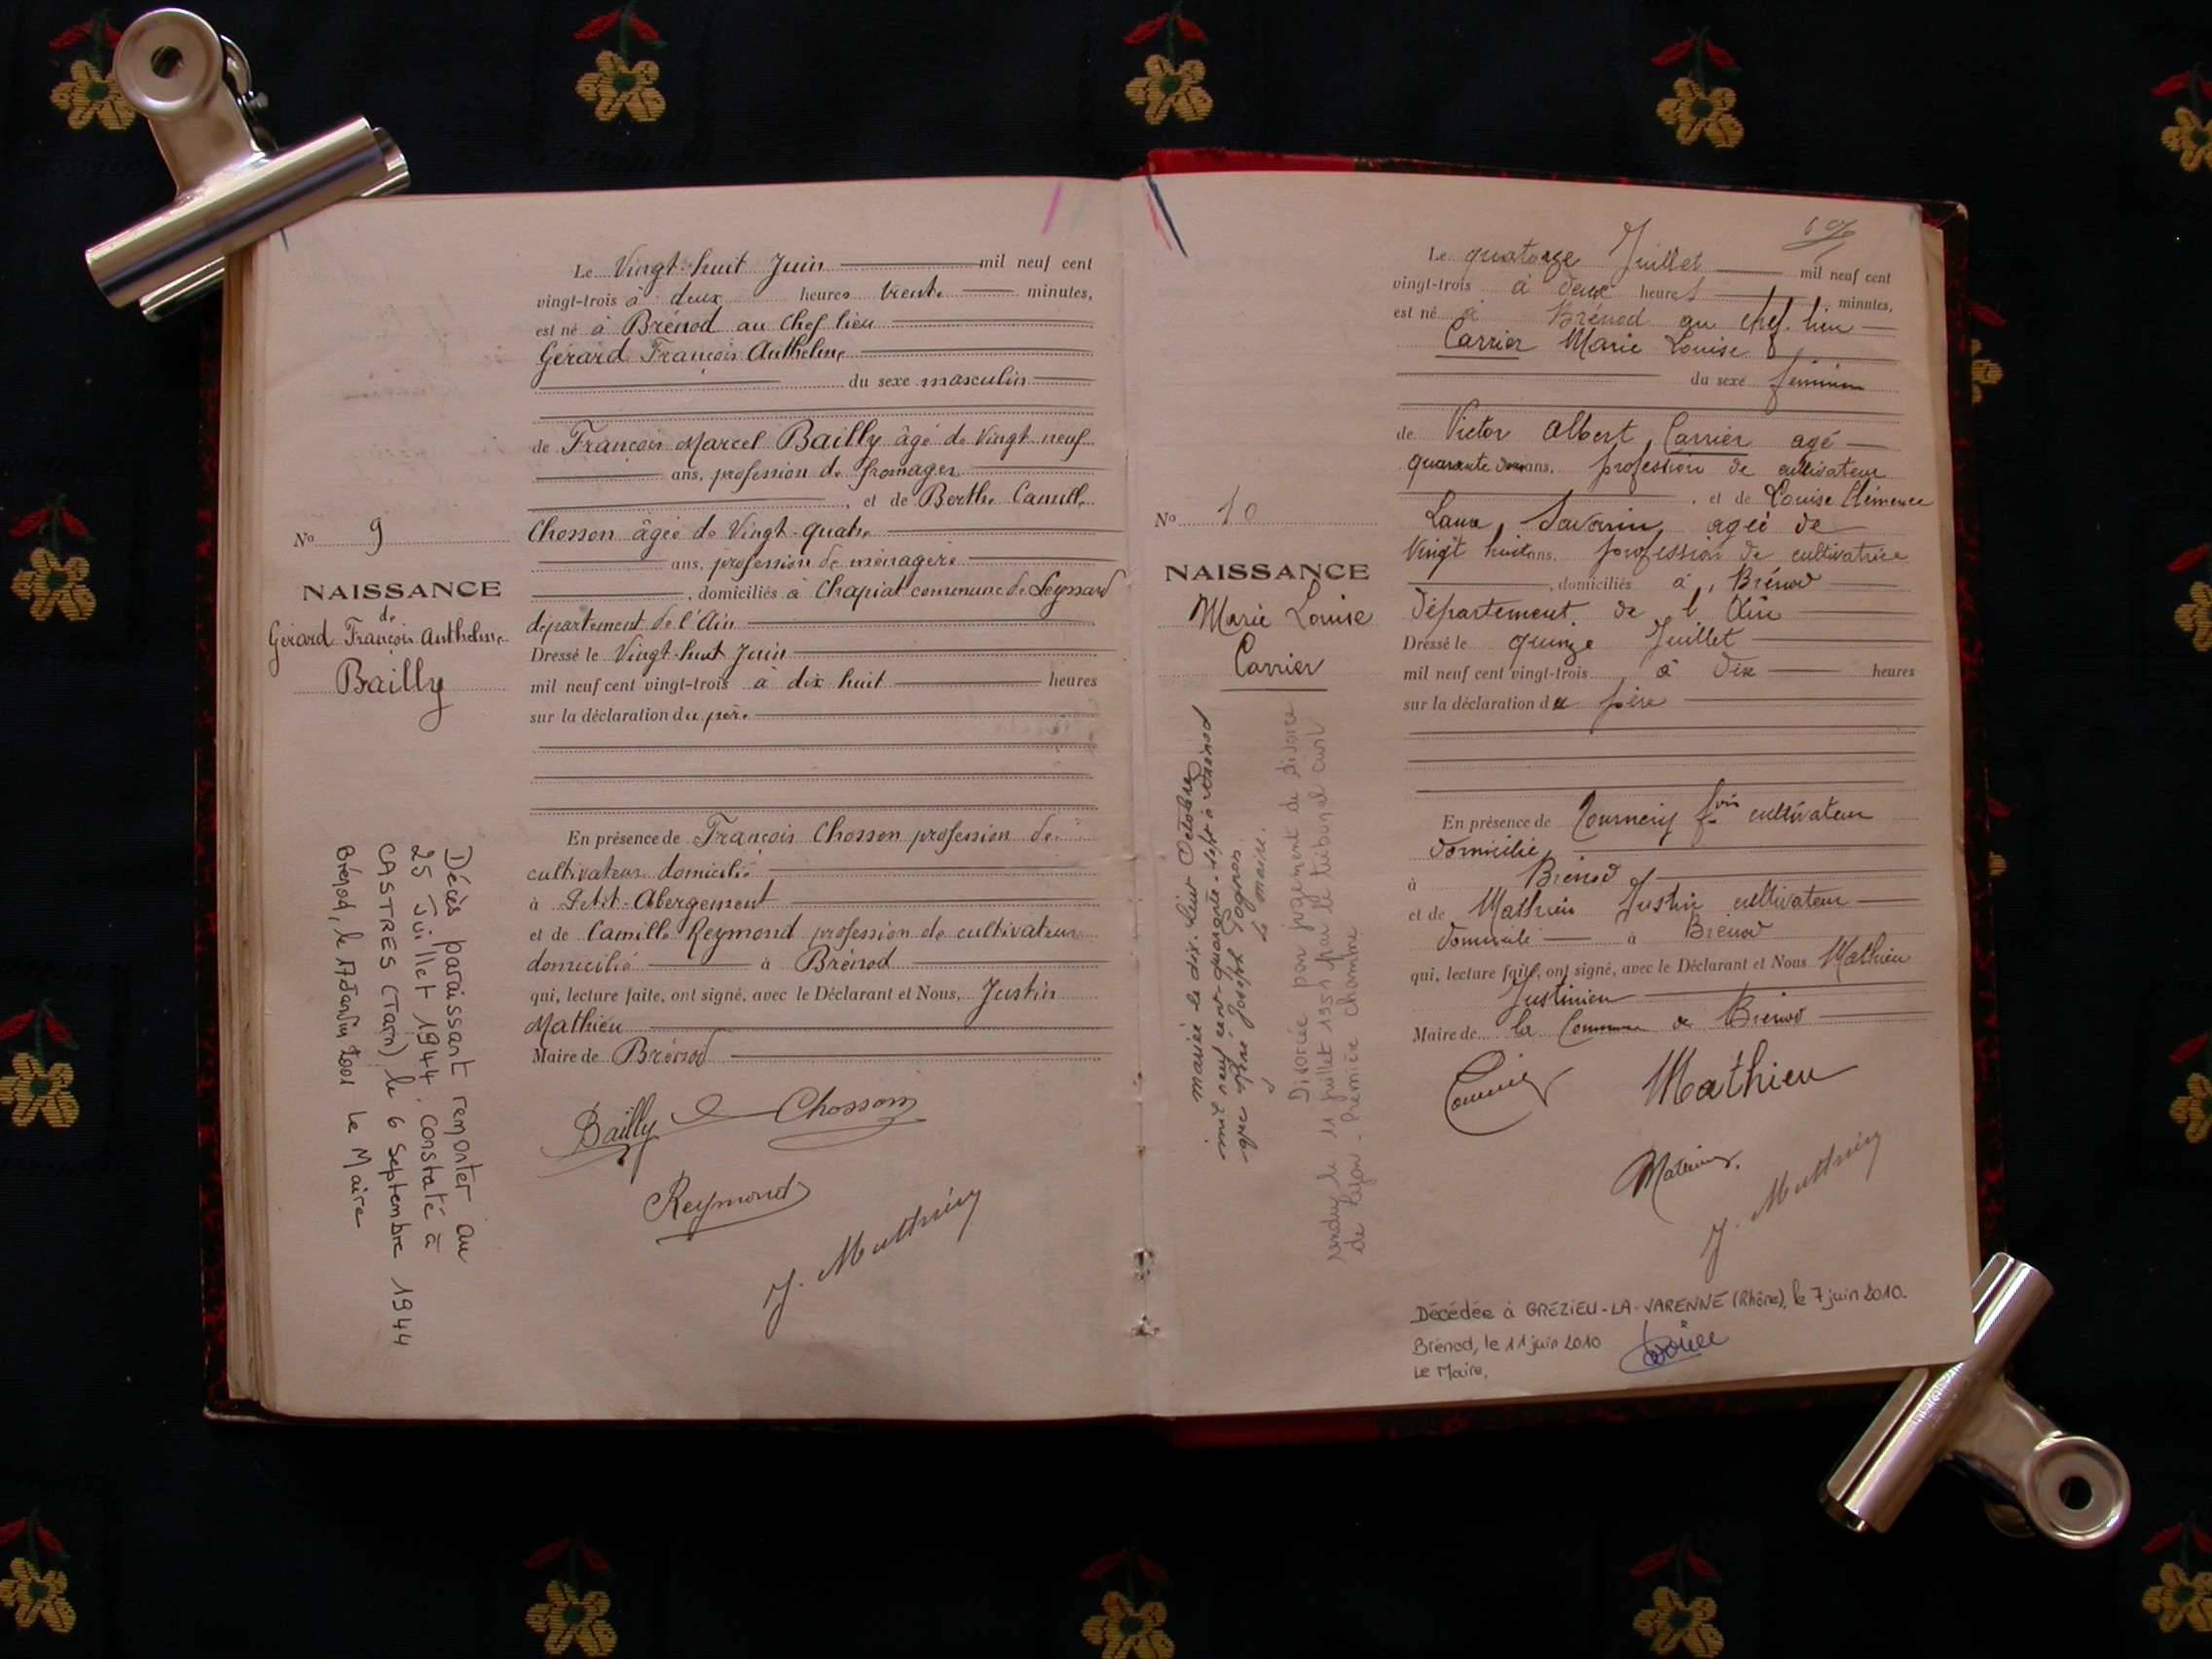 Le Vingt-huit Juin mil neuf cent
vingt-trois à deux heures trente minutes,
est né à Brénod au Chef lieu
Gérard François Anthelme
du sexe masculin
de François Marcel Bailly âgé de Vingt-neuf
ans, profession de fromager
, et de Berthe Camille
Chosson âgée de Vingt-quatre
ans, profession de ménagère
, domiciliés à Chapiat commune de Leyssard
département de l'Ain
Dressé le Vingt-huit Juin
mil neuf cent vingt-trois à dix huit heures
sur la déclaration du père
En présence de François Chosson profession de
cultivateur domicilié
à Petit-Abergement
et de Camille Reymond profession de cultivateur
domicilié à Brénod
qui, lecture faite, ont signé, avec le Déclarant et Nous, Justin
Mathieu
Maire de Brénod
Bailly Chosson
Reymond
J. Mathieu
No 9
NAISSANCE
de
Gérard François Anthelme
Bailly
Décès paraissant remonter au
25 Juillet 1944. Constaté à
CASTRES (Tarn) le 6 Septembre 1944
Brénod, le 2001 Le Maire
Le quatorze Juillet mil neuf cent
vingt-trois à deux heures minutes,
est né à Brénod au chef-lieu
Carrier Marie Louise
du sexe féminin
de Victor Albert Carrier agé
quarante ans, profession de cultivateur
, et de Louise Clémence
Laure, Savarin, agée de
Vingt huit ans, profession de cultivatrice
, domiciliés à, Brénod
Département de l'Ain
Dressé le quinze Juillet
mil neuf cent vingt-trois à dix heures
sur la déclaration du père
En présence de Tournery fois cultivateur
domicilié
à Brénod
et de Mathieu Justin cultivateur
domicilié à Brénod
qui, lecture faite, ont signé, avec le Déclarant et Nous Mathieu
Justinien
Maire de la Commune de Brénod
Mathieu
J. Mathieu
Décédée à GRÉZIEU-LA-VARENNE (Rhône), le 7 juin 2010.
Brénod, le 11 juin 2010
Le Maire,
No 10
NAISSANCE
Marie Louise
Carrier
mariée le dix-huit Octobre
mil neuf cent quarante-sept à Brénod
avec René Joseph
Le maire.
Divorcée par jugement de divorce
rendu le 11 juillet 1951 par le tribunal civil
de Lyon - Première chambre